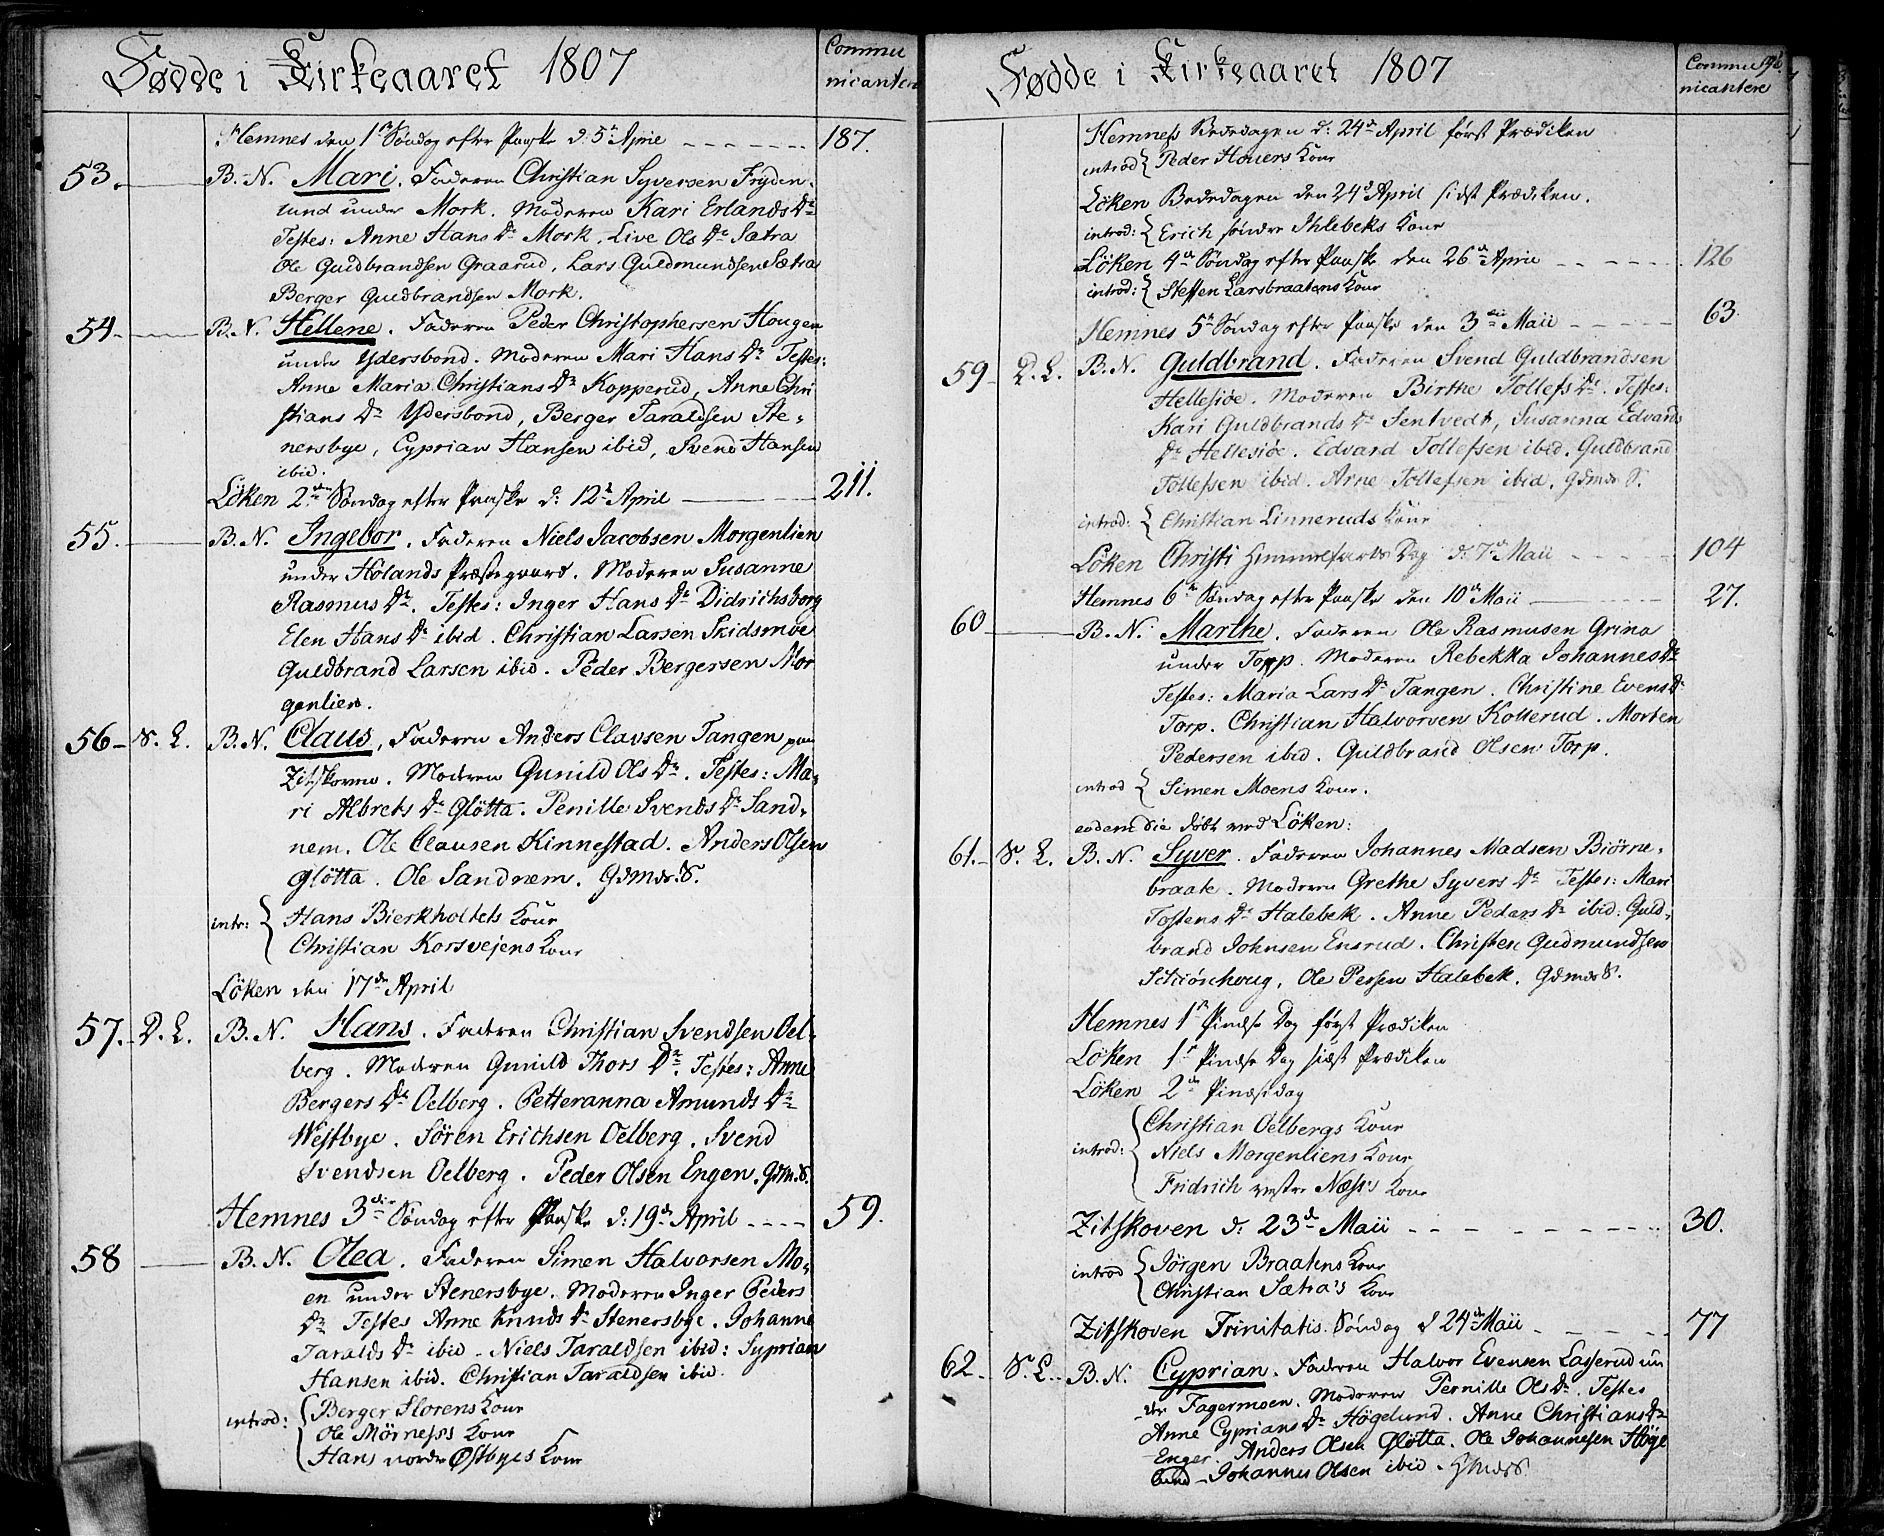 Fødde i Kirkeaaret 1807
Commu
nicantere
Hemnes den 1ste Søndag efter Paaske d: 5te April - - - - - - - 187.
53. B. N. Mari. Faderen Christian Syversen Fryden-
lund under Mork. Moderen Kari Erlands Dr
Testes: Anne Hans Dr Mork, Live Ols Dr Sætra
Ole Guldbrandsen Graarud, Lars Guldmundsen Sætra
Berger Guldbrandsen Mork.
54. B. N. Hellene. Faderen Peder Christophersen Hougen
under Ydersbond. Moderen Mari Hans Dr Testes:
Anne Maria Christians Dr Kopperud, Anne Chri
stians Dr Ydersbond, Berger Taraldsen Ste-
nersbye, Cyprian Hansen ibid, Svend Hansen
ibid.
Löken 2den Søndag efter Paaske d: 12te April 211.
55. B. N. Ingebor. Faderen Niels Jacobsen Morgenlien
under Hölands Præstegaard. Moderen Susanne
Rasmus Dr. Testes: Inger Hans Dr Didrichsborg
Elen Hans Dr ibid. Christian Larsen Skidsmoe
Guldbrand Larsen ibid. Peder Bergersen Mor
genlien.
56 S. L. B. N. Claus, Faderen Anders Clausen Tangen paa
Zitskoven. Moderen Gunild Ols Dr. Testes: Ma-
ri Albrets Dr Glötta. Penille Svends Dr Sand-
nem. Ole Clausen Kinnestad. Anders Olsen
Glötta. Ole Sandnem. Gdmds. S.
intr: { Hans Bierkholtets Kone
Christian Korsvejens Kone
Löken den 17de April
57. D. L. B. N. Hans. Faderen Christian Svendsen Oel-
berg. Moderen Gunild Thors Dr. Testes: Anne
Bergers Dr Oelberg. Petteranna Amunds Dr
Westbye. Sören Erichsen Oelberg. Svend
Svendsen Oelberg. Peder Olsen Engen. Gdm. S.
Hemnes 3die Søndag efter Paaske d: 19de April - - - - 59.
58 B. N. Olea. Faderen Simen Halvorsen Mo-
en under Stenersbye. Moderen Inger Peders
Dr Testes Anne Knuds Dr Stenersbye. Johanne
Taralds Dr ibid - Niels Taraldsen ibid: Syprian
Hansen ibid. Christian Taraldsen ibid.
introd: { Berger Slorens Kone
Ole Mörness's Kone
Hans nordre Østbyes Kone
Fødde i Kirkeaaret 1807
Commu
nicantere
Hemnes Bededagen d: 24de April først Prædiken
introd { Peder Houers Kone
Löken Bededagen den 24de April sidst Prædiken.
introd: { Erich søndre Ihlebeks Kone
Löken 4de Søndag efter Paaske den 26de April - - - - - 126
introd: { Steffen Larsbraatens Kone
Hemnes 5te Søndag efter Paaske den 3die Maii - - - - 63.
59 D. L. B. N. Guldbrand. Faderen Svend Guldbrandsen
Hellesiøe. Moderen Birthe Tollefs Dr. Testes:
Kari Guldbrands Dr Tentvedt, Susanna Edvards
Dr Hellesiøe. Edvard Tollefsen ibid. Guldbrand
Tollefsen ibid. Arne Tollefsen ibid. Gdmds S.
introd: { Christian Linneruds Kone
Löken Christi Himmelfarts Dag d: 7de Maii - - - - 104
Hemnes 6te Søndag efter Paaske den 10de Maii 27.
60 B. N. Marthe. Faderen Ole Rasmusen Grina
under Torp. Moderen Rebekka Johannes Dr
Testes: Maria Lars Dr Tangen. Christine Evens Dr
Torp. Christian Halvorven Kollerud. Morten
Pedersen ibid. Guldbrand Olsen Torp.
introd { Simen Moens Kone.
eodem die døbt ved Löken:
61. S. L. B. N. Syver. Faderen Johannes Madsen Biørne-
braate. Moderen Grethe Syvers Dr Testes: Mari
Tostens Dr Halebek. Anne Peders Dr ibid. Guld-
brand Johnsen Ensrud. Christen Gudmundsen
Ole Persen Halebek. Gdmds S.
Hemnes 1ste Pindse Dag først Prædiken
Löken 1ste Pindse Dag sidst Prædiken
Löken 2den Pindsedag
introd: { Christian Oelbergs Kone
Niels Morgenliens Kone
Fridrich vestre Næss's Kone
Zitskoven d. 23de Maii - - - - - - - - 30.
introd { Jörgen Braatens Kone
Christian Sætra's Kone
Zitskoven Trinitatis Søndag d 24de Maii - - - - - 77
62 S. L. B. N. Cyprian. Faderen Halvor Evensen Lasserud un
der Fagermoen. Moderen Pernille Ols Dr. Testes
Anne Cyprians Dr Högelund. Anne Christians Dr
Enger. Anders Olsen Glötta. Ole Johannesen Höge
lund - Johannes Olsen ibid - Gdmds S.